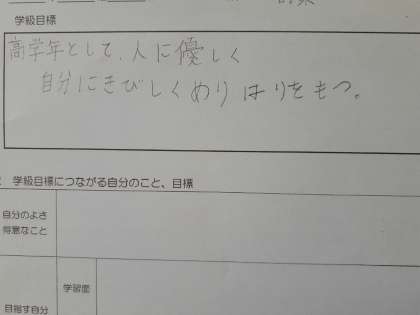 学級目標
高学年として、人に優しく
自分にきびしくめりはりをもつ。
学級目標につながる自分のこと、目標
自分のよさ
得意なこと
学習面
目指す自分